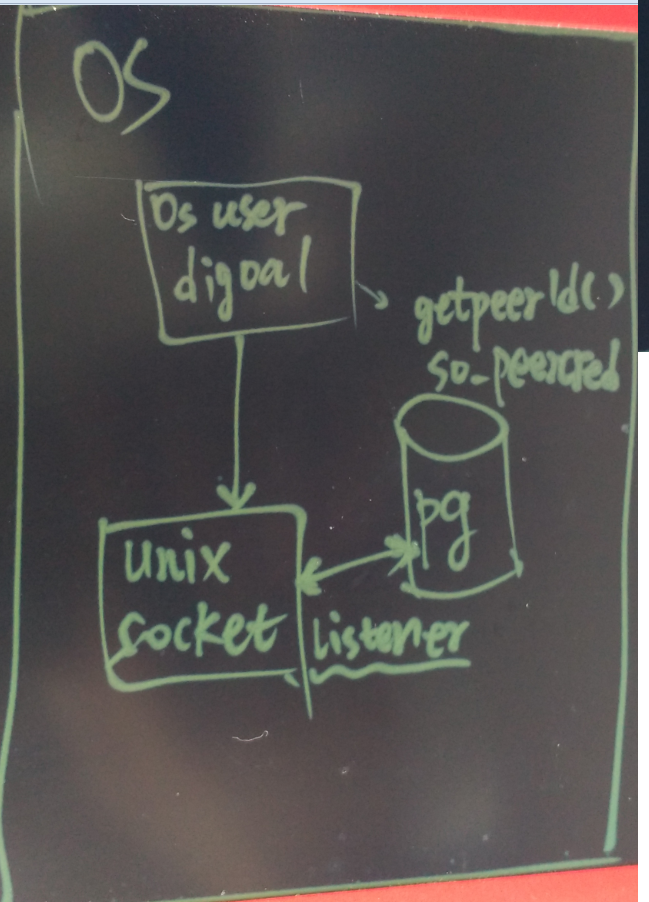 OS
Os user
digoal
getpeerid()
so_peercred
pg
unix
socket
listener